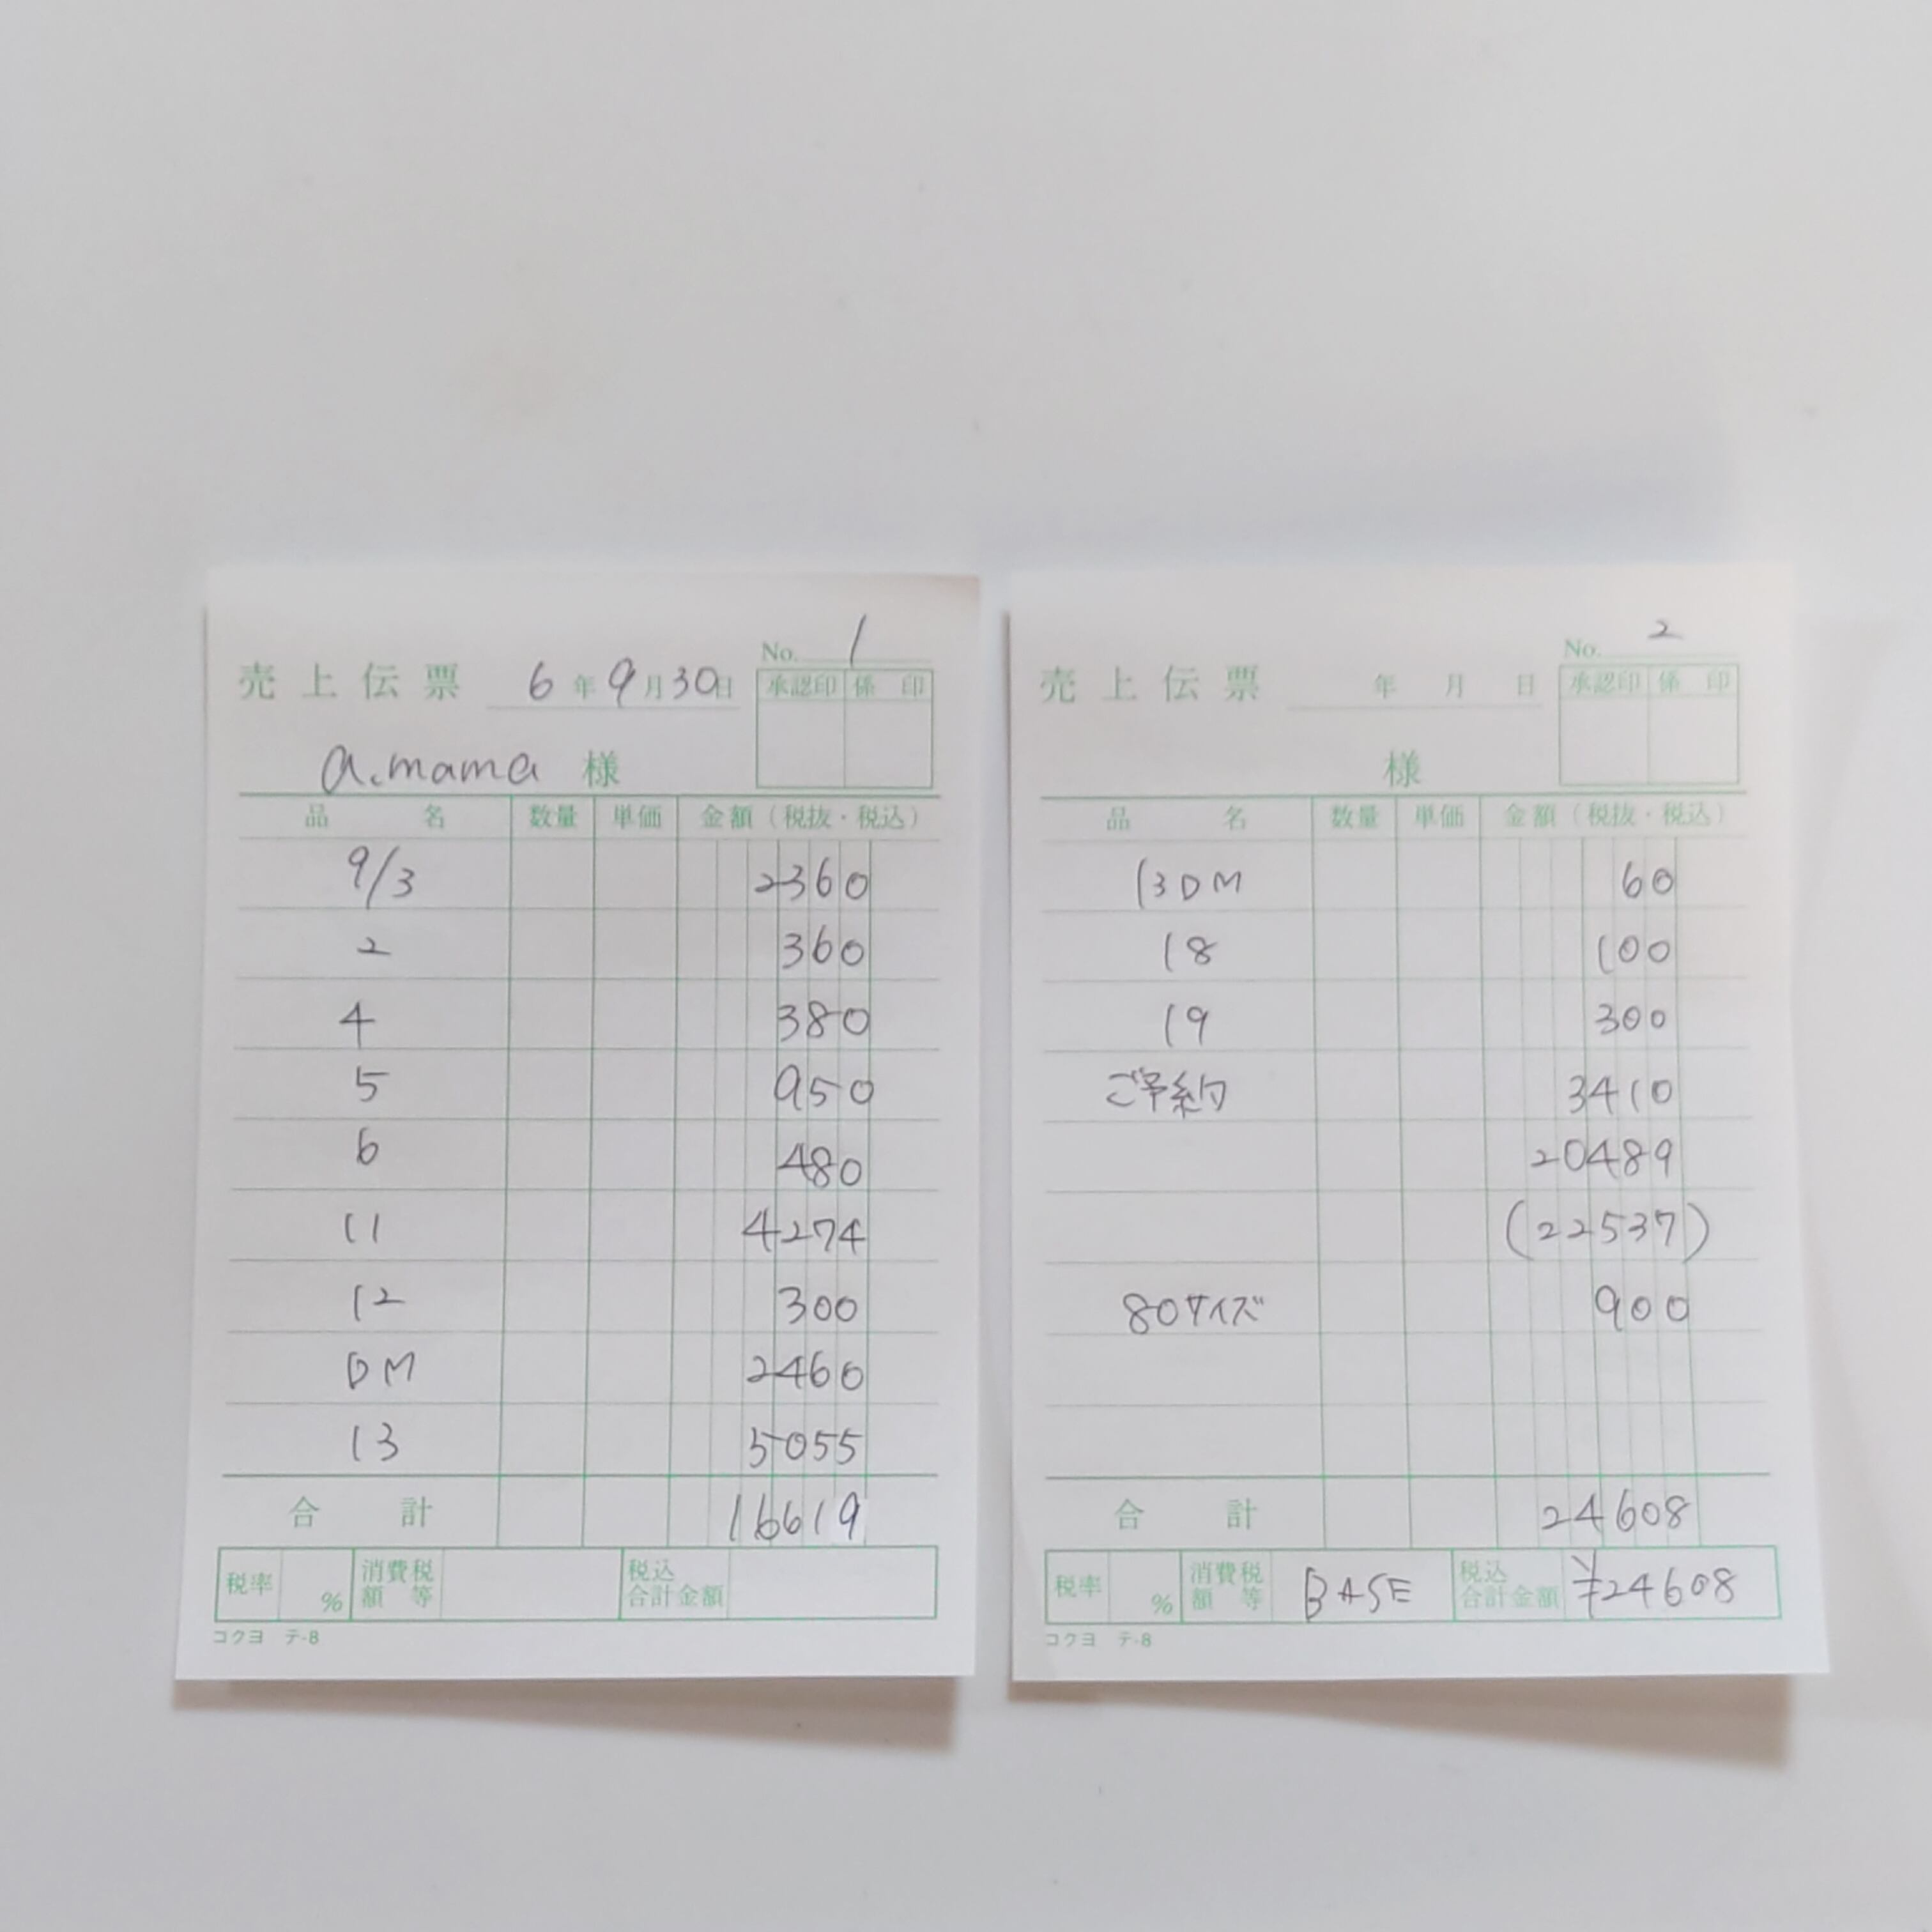 No. 1
売上伝票 6年9月30日
承認印 係印
a.mama 様
品名 数量 単価 金額（税抜・税込）
9/3 2360
2 360
4 380
5 950
6 480
11 4274
12 300
DM 2460
13 5055
合計 16619
税率 % 消費税額等 税込合計金額
コクヨ テ-8
No. 2
売上伝票 年 月 日
承認印 係印
様
品名 数量 単価 金額（税抜・税込）
13DM 60
18 100
19 300
ご予約 3410
20489
(22537)
80サイズ 900
合計 24608
税率 % 消費税額等 BASE 税込合計金額 ¥24608
コクヨ テ-8